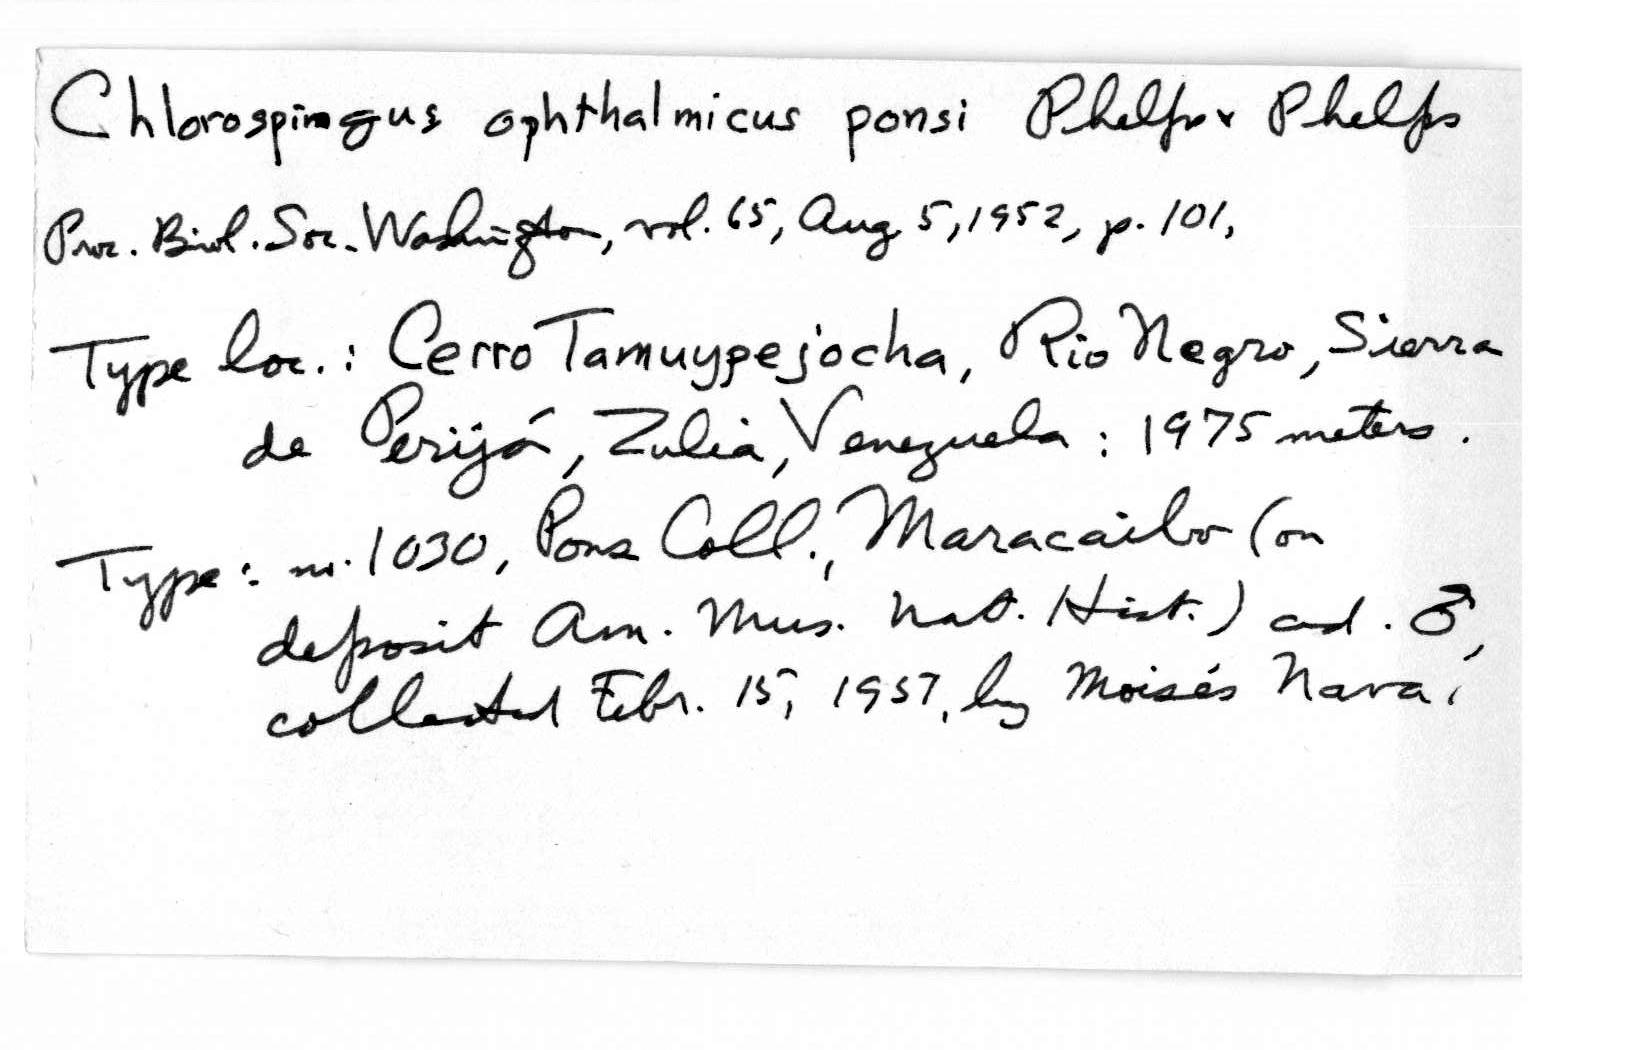 Chlorospingus ophthalmicus ponsi Phelps & Phelps
Proc. Biol. Soc. Washington, vol. 65, Aug 5, 1952, p. 101,
Type loc.: Cerro Tamuypejocha, Rio Negro, Sierra
de Perijá, Zulia, Venezuela : 1975 meters.
Type: no. 1030, Pons Coll., Maracaibo (on
deposit Am. Mus. Nat. Hist.) ad. ♂,
collected Febr. 15, 1957, by Moisés Nava.